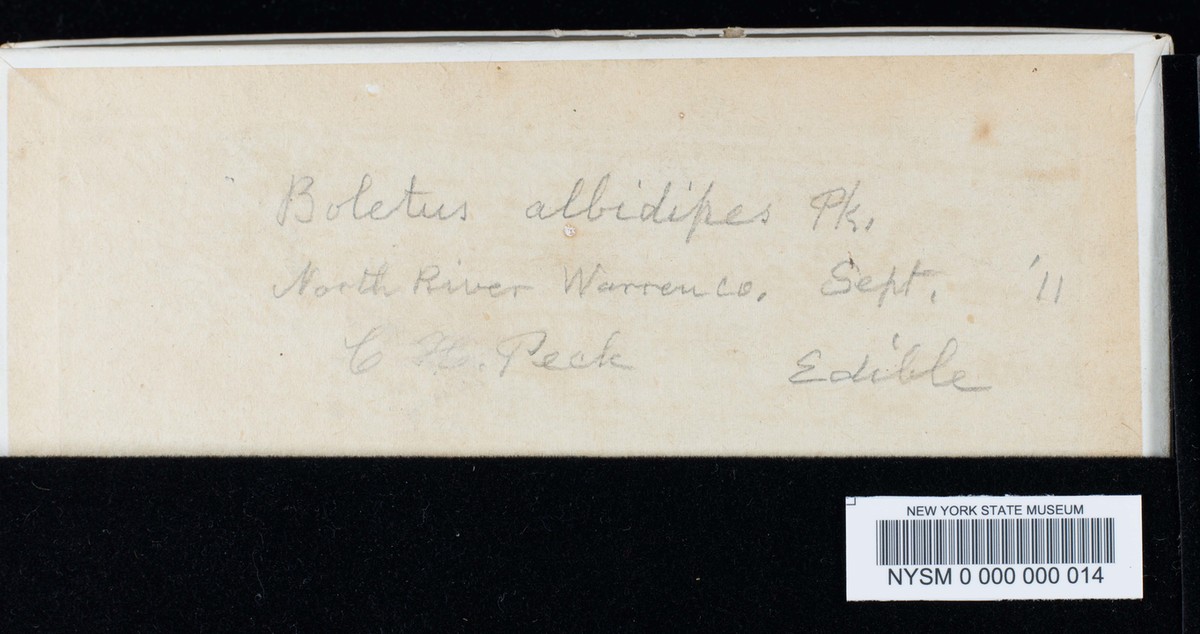 Boletus albidipes Pk.
North River Warren co. Sept. '11
C H. Peck Edible
NEW YORK STATE MUSEUM
NYSM 0 000 000 014